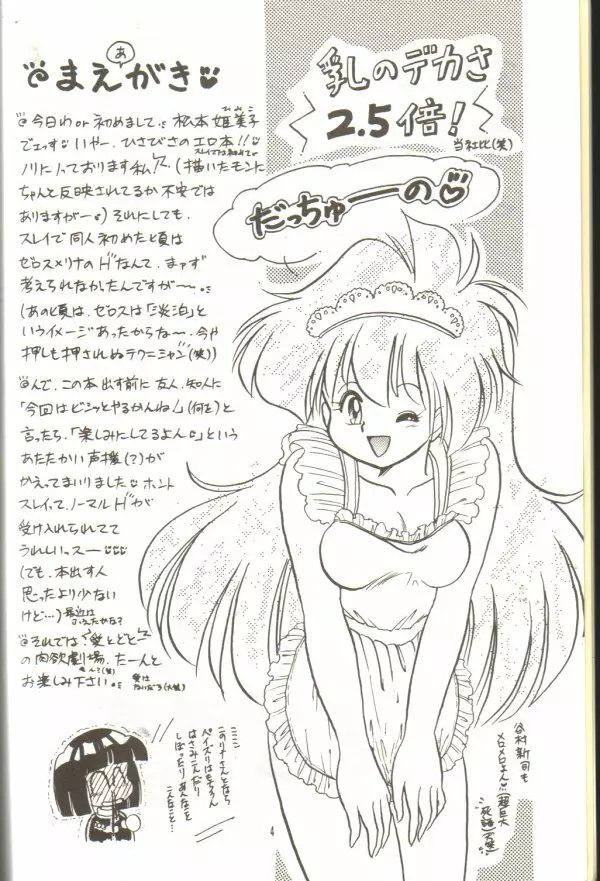 まえがき
あ
今日わor初めまして。松本 姫美子
でェっす いやー、ひさびさのエロ本!!
ノリにノっております私 (描いたモントに
ちゃんと反映されてるか不安では
ありますがー) それにしても、
スレイで同人初めた頃は
ゼロスメリナのHなんて、まァず
考えられなかったんですがー。
(あの頃は、ゼロスは「淡泊」と
いうイメージあったからなー、今や
押しも押されぬテクニシャン(笑))
んで、この本出す前に友人、知人に
「今回はビシッとやるかんね!」(何を)と
言ったら、「楽しみにしてるよん」という
あたたかい声援(?)が
かえってまいりました ホント
スレイって、ノーマルHが
受け入れられてて
うれしいっスー
(でも、本出す人
思ったより少ない
けど…)最近は
ふえたかな?
それでは、愛とどとー
の肉欲劇場、たーんと
お楽しみ下さい。
愛は
ないだろ(大笑)
乳しのデカさ
2.5倍!
当社比(笑)
だっちゅーの
ミミミ…
このリナさんとなら
パイズリはもちろん
はさみこんだり
しぼったりあんなこと
こんなこと…
谷村新司も
メロメロよん
(超巨大
死語)大笑
4